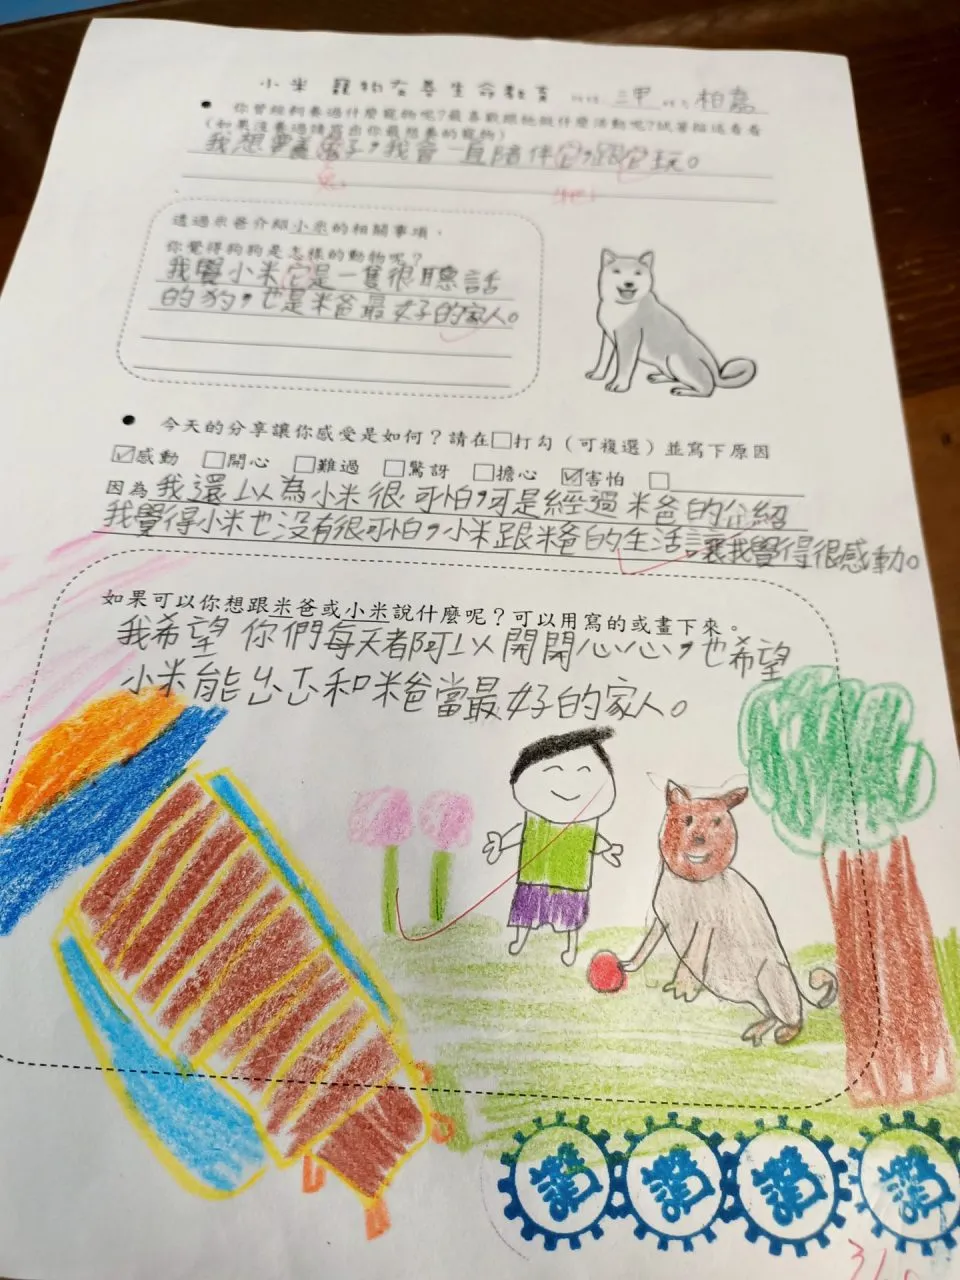 小米 寵物友善生命教育 三甲
你曾經飼養過什麼寵物呢?最喜歡跟牠做什麼活動呢?試著描述看看
(如果沒養過請寫出你最想養的寵物)
我想要養兔子,我會一直陪伴它,跟它玩。
兔
牠
透過米爸介紹小米的相關事項,
你覺得狗狗是怎樣的動物呢?
我覺小米它是一隻很聽話
的狗,也是米爸最好的家人。
今天的分享讓你感受是如何?請在□打勾(可複選)並寫下原因
☑感動 □開心 □難過 □驚訝 □擔心 ☑害怕 □
因為我還以為小米很可怕,可是經過米爸的介紹
我覺得小米也沒有很可怕,小米跟米爸的生活讓我覺得很感動。
如果可以你想跟米爸或小米說什麼呢?可以用寫的或畫下來。
我希望你們每天都可以開開心心,也希望
小米能永正和米爸當最好的家人。
讚 讚 讚 讚